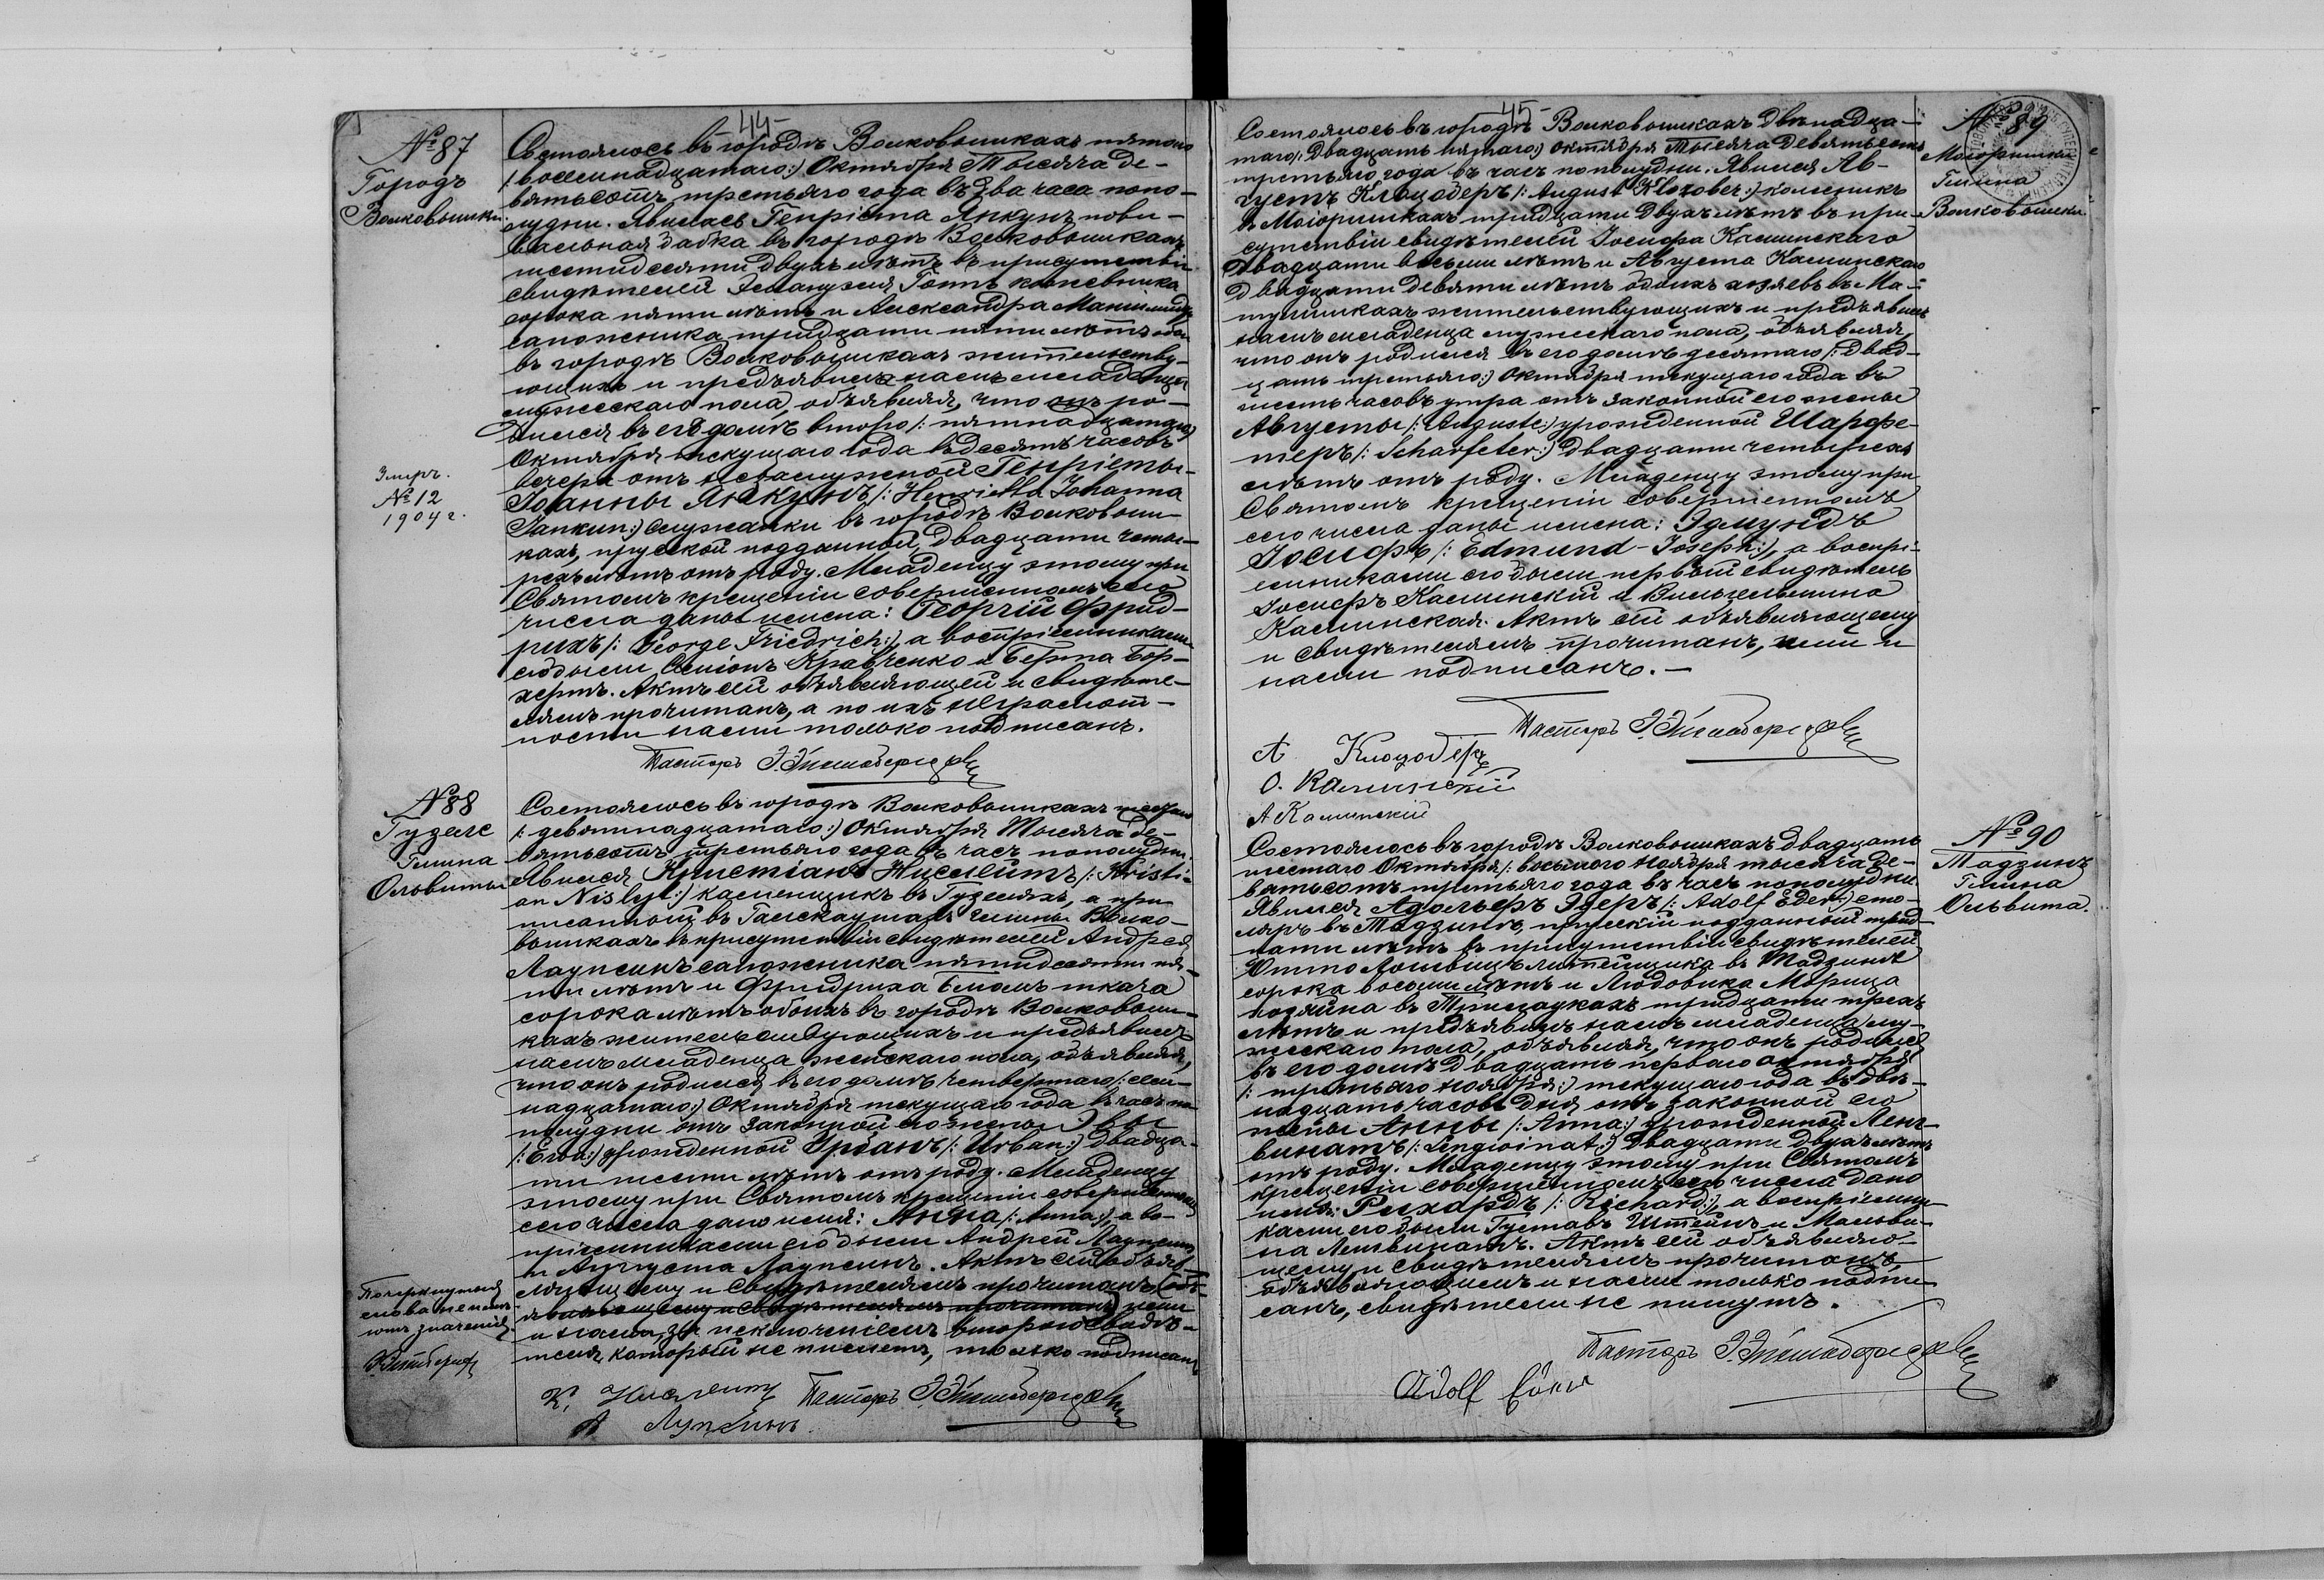 -44-
№ 87
Городъ
Волковышки.
Состоялось въ городѣ Волковышкахъ пятого
/:восемнадцатаго:/ Октября Тысяча де-
вятьсотъ третьяго года въ два часа попо-
лудни. Явилась Генріета Янкунъ пови-
вальная бабка въ городѣ Волковышкахъ
шестидесяти двухъ лѣтъ въ присутствіи
свидѣтелей Эммануеля Готъ кожевника
сорока пяти лѣтъ и Александра
сапожника тридцати пяти лѣтъ обоихъ
въ городѣ Волковышкахъ жительству-
ющихъ и предъявила намъ младенца
мужескаго пола, объявляя, что онъ ро-
дился въ его домѣ второго /:пятнадцатаго:/
Октября текущаго года въ десять часовъ
вечера отъ незамужной Генріеты-
Іоанны Янкунъ /: Henrietta Johanna
Jankun:/ служанки въ городѣ Волковыш-
кахъ, прусской подданной, двадцати четы-
рехъ лѣтъ отъ роду. Младенцу этому при
Святомъ крещеніи совершенномъ сего
числа даны имена: Георгій Фрид-
рихъ /: George Friedrich:/, а воспріемниками
его были Семіонъ Кравченко и Берта Бор-
хертъ. Актъ сей объявляющей и свидѣте-
лямъ прочитанъ, а по ихъ неграмот-
ности нами только подписанъ.
Пасторъ
Умеръ.
№ 12
1904 г.
№ 88
Гузеле
Гмина
Ольвиты
Состоялось въ городѣ Волковышкахъ шестого
/: девятнадцатаго:/ Октября Тысяча де-
вятьсотъ третьяго года въ часъ пополудни.
Явился Христіанъ Нислитъ /: Kristi-
an Nislyt:/ каменщикъ въ Гузеляхъ, а при
писанный въ гмины Волко-
вышкахъ въ присутствіи свидѣтелей Андрея
Лаупсинъ сапожника пятидесяти пя-
ти лѣтъ и Фридриха Блюмъ ткача
сорока лѣтъ обоихъ въ городѣ Волковыш-
кахъ жительствующихъ и предъявилъ
намъ младенца женскаго пола, объявляя,
что онъ родился въ его домѣ четвертаго /: сем-
надцатаго:/ Октября текущаго года въ часъ по-
полудни отъ законной его жены Эвы
/: Ewa:/ урожденной Урбанъ /: Urban:/ двадца-
ти шести лѣтъ отъ роду. Младенцу
этому при Святомъ крещеніи совершенномъ
сего числа дано имя: Анна /: Anna:/, а во-
пріемниками его были Андрей Лаупсинъ
и Августа Лаупсинъ. Актъ сей объяв-
ляющему и свидѣтелямъ прочитанъ, (объ-
являющему и свидѣтелямъ прочитанъ) ими
и нами, за исключеніемъ второго свидѣ-
теля, который не пишетъ, только подписанъ
Почеркнутыя
слова не имѣ-
ютъ значенія.
К. Нислитъ Пасторъ
А
-45-
№ 89
Гмина
Волковышки
Состоялось въ городѣ Волковышкахъ двѣнадца-
таго /: Двадцать пятаго:/ Октября Тысяча девятьсотъ
третьяго года въ часъ пополудни. Явился Ав-
густъ Клоцоберъ /: August Klozober:/ колесникъ
въ тридцати двухъ лѣтъ въ при-
сутствіи свидѣтелей Іосифа Калинскаго
двадцати восьми лѣтъ и Августа Калинскаго
двадцати девяти лѣтъ обоихъ хозяевъ въ
жительствующихъ и предъявилъ
намъ младенца мужескаго пола, объявляя,
что онъ родился въ его домѣ десятаго /: двад-
цать третьяго:/ Октября текущаго года въ
шесть часовъ утра отъ законной его жены
Августы /: Auguste:/ урожденной Шарфе-
теръ /: Scharfeter:/ двадцати четырехъ
лѣтъ отъ роду. Младенцу этому при
Святомъ крещеніи совершенномъ
сего числа даны имена: Эдмундъ
Іосифъ /: Edmund-Joseph:/, а воспрі-
емниками его были первый свидѣтель
Іосифъ Калинскій и Вильгельмина
Калинская. Актъ сей объявляющему
и свидѣтелямъ прочитанъ, ими и
нами подписанъ.-
Пасторъ
А Клоцоберъ
О. Калинскій
А Калинскій
№ 90
Тадзинъ
Гмина
Ольвита.
Состоялось въ городѣ Волковышкахъ двадцать
шестаго Октября /: восьмого Ноября тысяча де-
вятьсотъ третьяго года въ часъ пополудни.
Явился Адольфъ Эдеръ /: Adolf Eder:/ сто-
ляръ въ Тадзинѣ, прусскій подданный трид-
цати лѣтъ въ присутствіи свидѣтелей
Отто литейщика въ Тадзинѣ
сорока восьми лѣтъ и Людовика Морица
хозяина въ тридцати трехъ
лѣтъ и предъявилъ намъ младенца му-
жескаго пола, объявляя, что онъ родился
въ его домѣ двадцать перваго октября
/: третьяго Ноября:/ текущаго года въ двѣ-
надцать часовъ дня отъ законной его
жены Анны /: Anna:/ урожденной Ленг-
винатъ /: Lengwinat:/ двадцати двухъ лѣтъ
отъ роду. Младенцу этому при Святомъ
крещеніи совершенномъ сего числа дано
имя: Рихардъ /: Richard:/, а воспріемни-
ками его были Густавъ Штейнъ и Мальви-
на Ленгвинатъ. Актъ сей объявляю-
щему и свидѣтелямъ прочитанъ,
объявляющимъ и нами только подпи-
санъ, свидѣтели не пишутъ.
Пасторъ
Adolf Eder